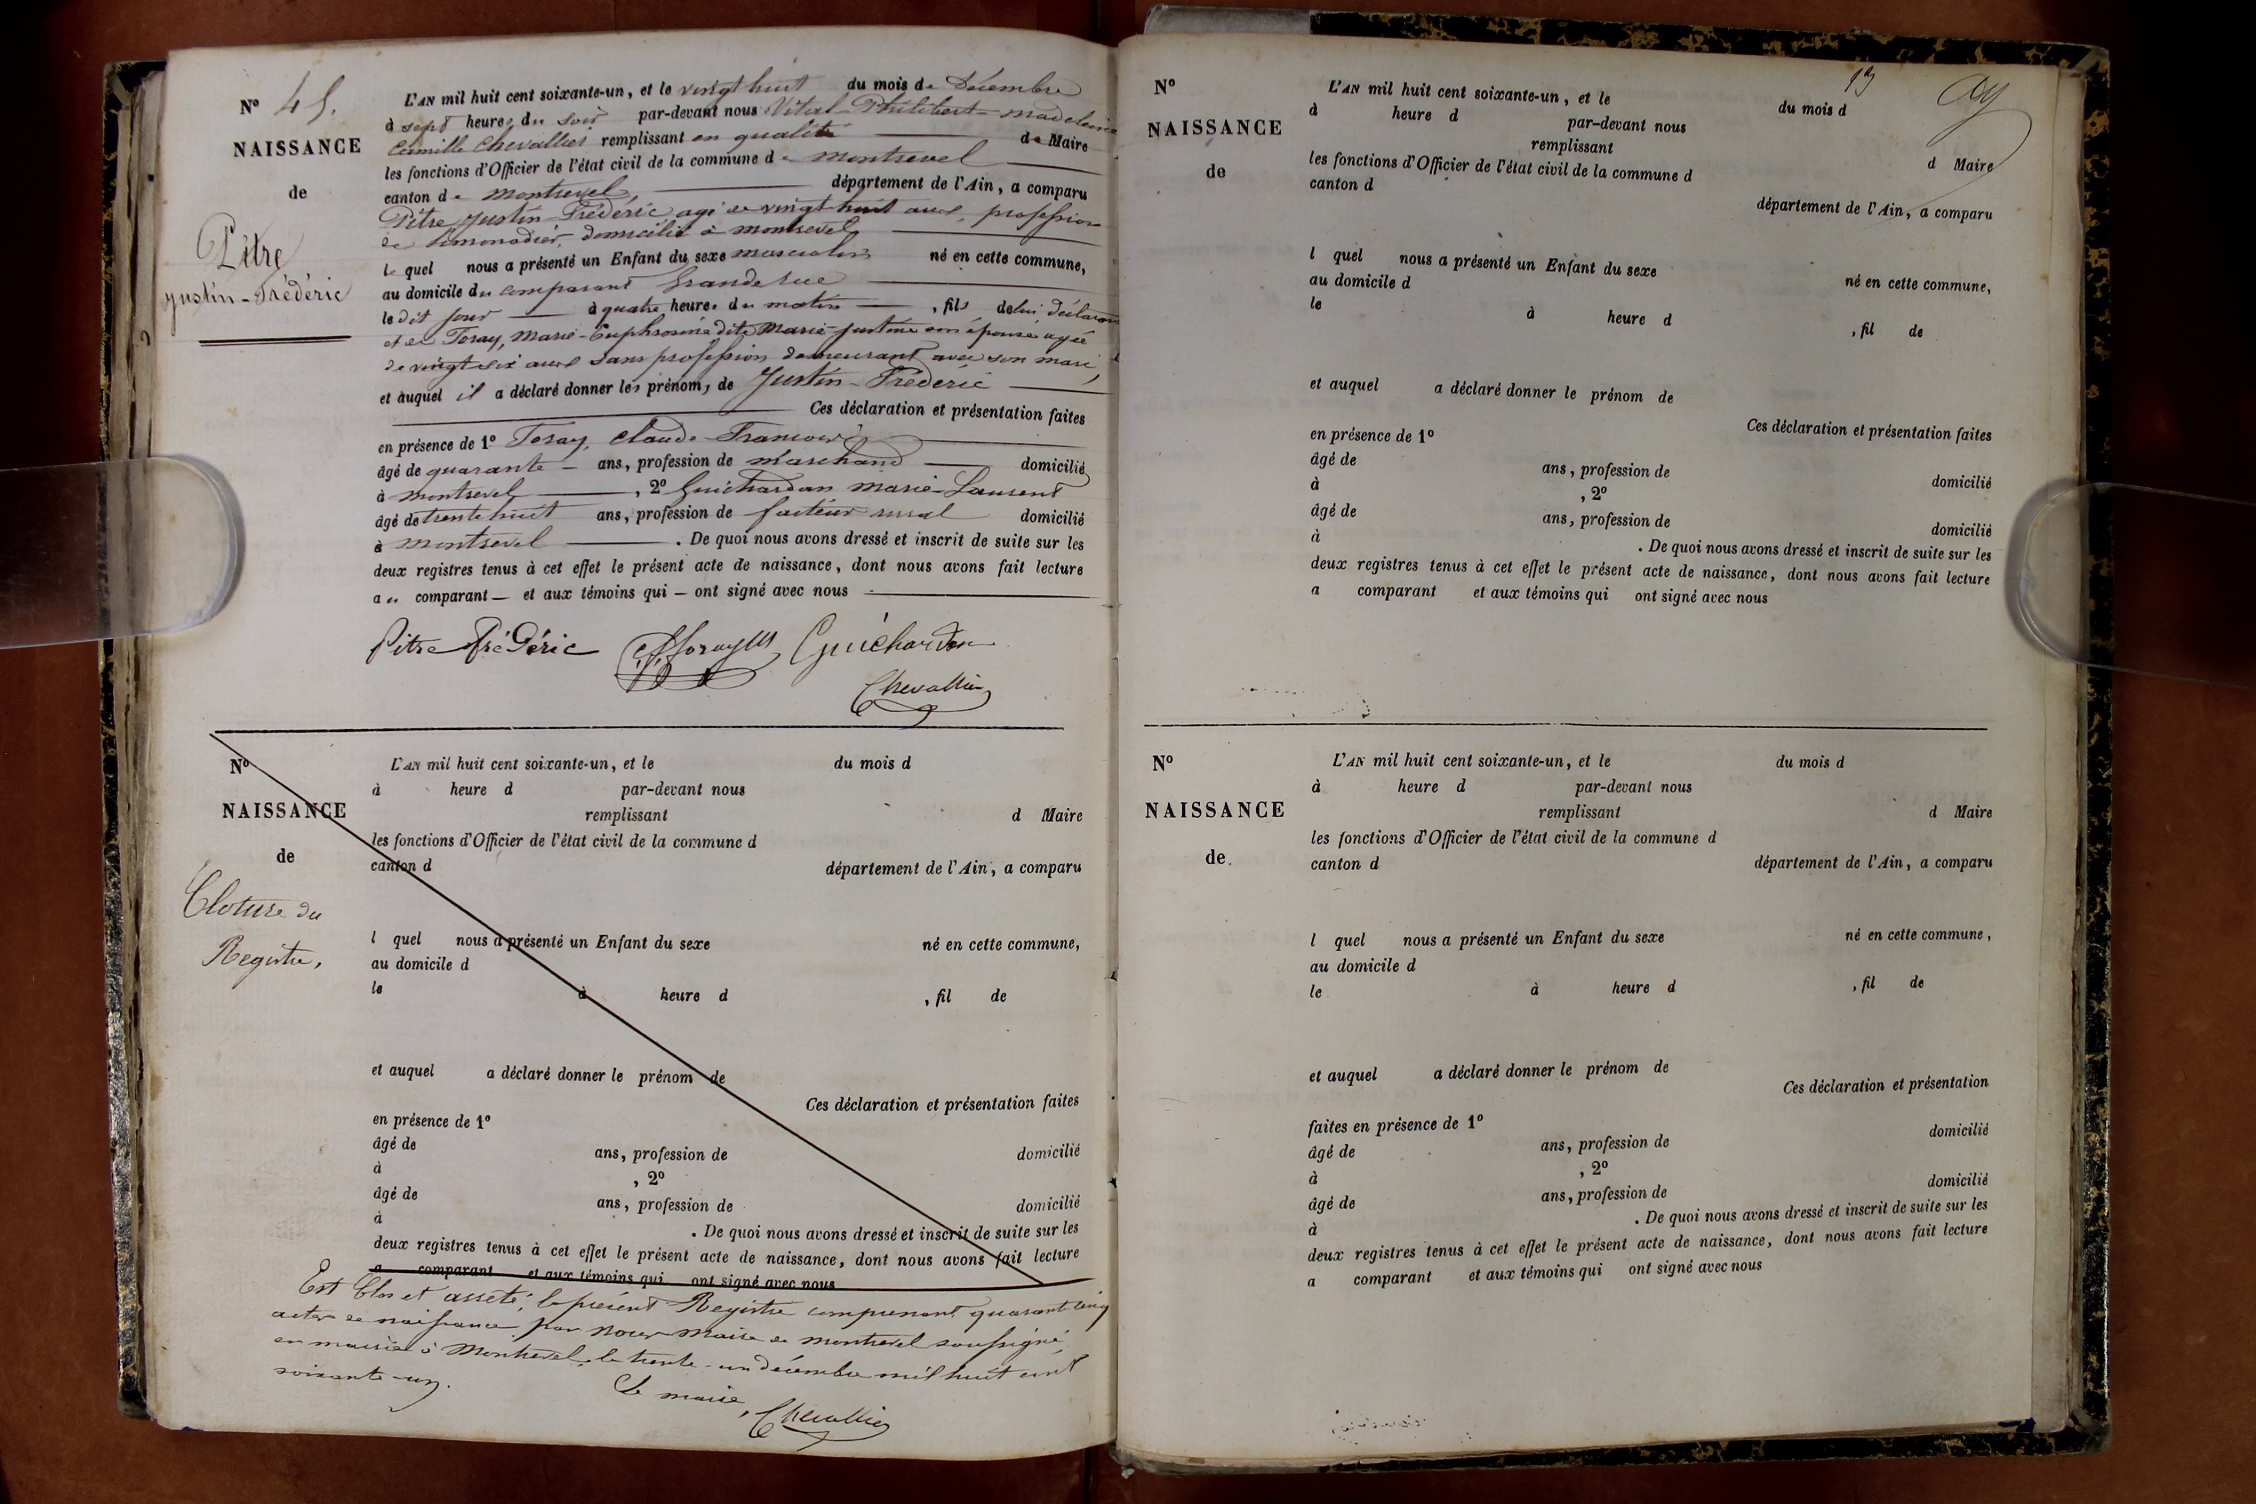 N° 45.
NAISSANCE
de
Pitre
Justin-Frédéric
L'AN mil huit cent soixante-un, et le vingt huit du mois de Décembre
à sept heures du soir par-devant nous Vital-Philibert-Madeleine
Camille Chevallier remplissant en qualité de Maire
les fonctions d'Officier de l'état civil de la commune de Montrevel
canton de Montrevel, département de l'Ain, a comparu
Pitre Justin-Frédéric agé de vingt huit ans, profession
de limonadier, domicilié à Montrevel
lequel nous a présenté un Enfant du sexe masculin né en cette commune,
au domicile du comparant Grande rue
le dit jour à quatre heures du matin, fils de lui déclarant
et de Foray, Marie-Euphrosine dite Marie-Justine son épouse agée
de vingt six ans sans profession demeurant avec son mari,
et auquel il a déclaré donner les prénoms de Justin-Frédéric
Ces déclaration et présentation faites
en présence de 1° Foray, Claude-François
âgé de quarante ans, profession de marchand domicilié
à Montrevel, 2° Guichardon Marie-Laurent
âgé de trente huit ans, profession de facteur rural domicilié
à Montrevel. De quoi nous avons dressé et inscrit de suite sur les
deux registres tenus à cet effet le présent acte de naissance, dont nous avons fait lecture
au comparant et aux témoins qui ont signé avec nous
Pitre Frédéric Guichardon
Chevallier
N°
NAISSANCE
de
Cloture du
Registre,
L'AN mil huit cent soixante-un, et le du mois d
à heure d par-devant nous
remplissant d Maire
les fonctions d'Officier de l'état civil de la commune d
canton d département de l'Ain, a comparu
l quel nous a présenté un Enfant du sexe né en cette commune,
au domicile d
le à heure d , fil de
et auquel a déclaré donner le prénom de
Ces déclaration et présentation faites
en présence de 1°
âgé de ans, profession de domicilié
à , 2°
âgé de ans, profession de domicilié
à . De quoi nous avons dressé et inscrit de suite sur les
deux registres tenus à cet effet le présent acte de naissance, dont nous avons fait lecture
a comparant et aux témoins qui ont signé avec nous
Est Clos et arrêté, le présent Registre comprenant quarante cinq
actes de naissance par nous Maire de Montrevel soussigné,
en mairie à Montrevel, le trente-un décembre mil huit cent
soixante-un.
Le maire,
Chevallier
13
N°
NAISSANCE
de
L'AN mil huit cent soixante-un, et le du mois d
à heure d par-devant nous
remplissant d Maire
les fonctions d'Officier de l'état civil de la commune d
canton d département de l'Ain, a comparu
l quel nous a présenté un Enfant du sexe né en cette commune,
au domicile d
le à heure d , fil de
et auquel a déclaré donner le prénom de
Ces déclaration et présentation faites
en présence de 1°
âgé de ans, profession de domicilié
à , 2°
âgé de ans, profession de domicilié
à . De quoi nous avons dressé et inscrit de suite sur les
deux registres tenus à cet effet le présent acte de naissance, dont nous avons fait lecture
a comparant et aux témoins qui ont signé avec nous
N°
NAISSANCE
de
L'AN mil huit cent soixante-un, et le du mois d
à heure d par-devant nous
remplissant d Maire
les fonctions d'Officier de l'état civil de la commune d
canton d département de l'Ain, a comparu
l quel nous a présenté un Enfant du sexe né en cette commune,
au domicile d
le à heure d , fil de
et auquel a déclaré donner le prénom de
Ces déclaration et présentation
faites en présence de 1°
âgé de ans, profession de domicilié
à , 2°
âgé de ans, profession de domicilié
à . De quoi nous avons dressé et inscrit de suite sur les
deux registres tenus à cet effet le présent acte de naissance, dont nous avons fait lecture
a comparant et aux témoins qui ont signé avec nous